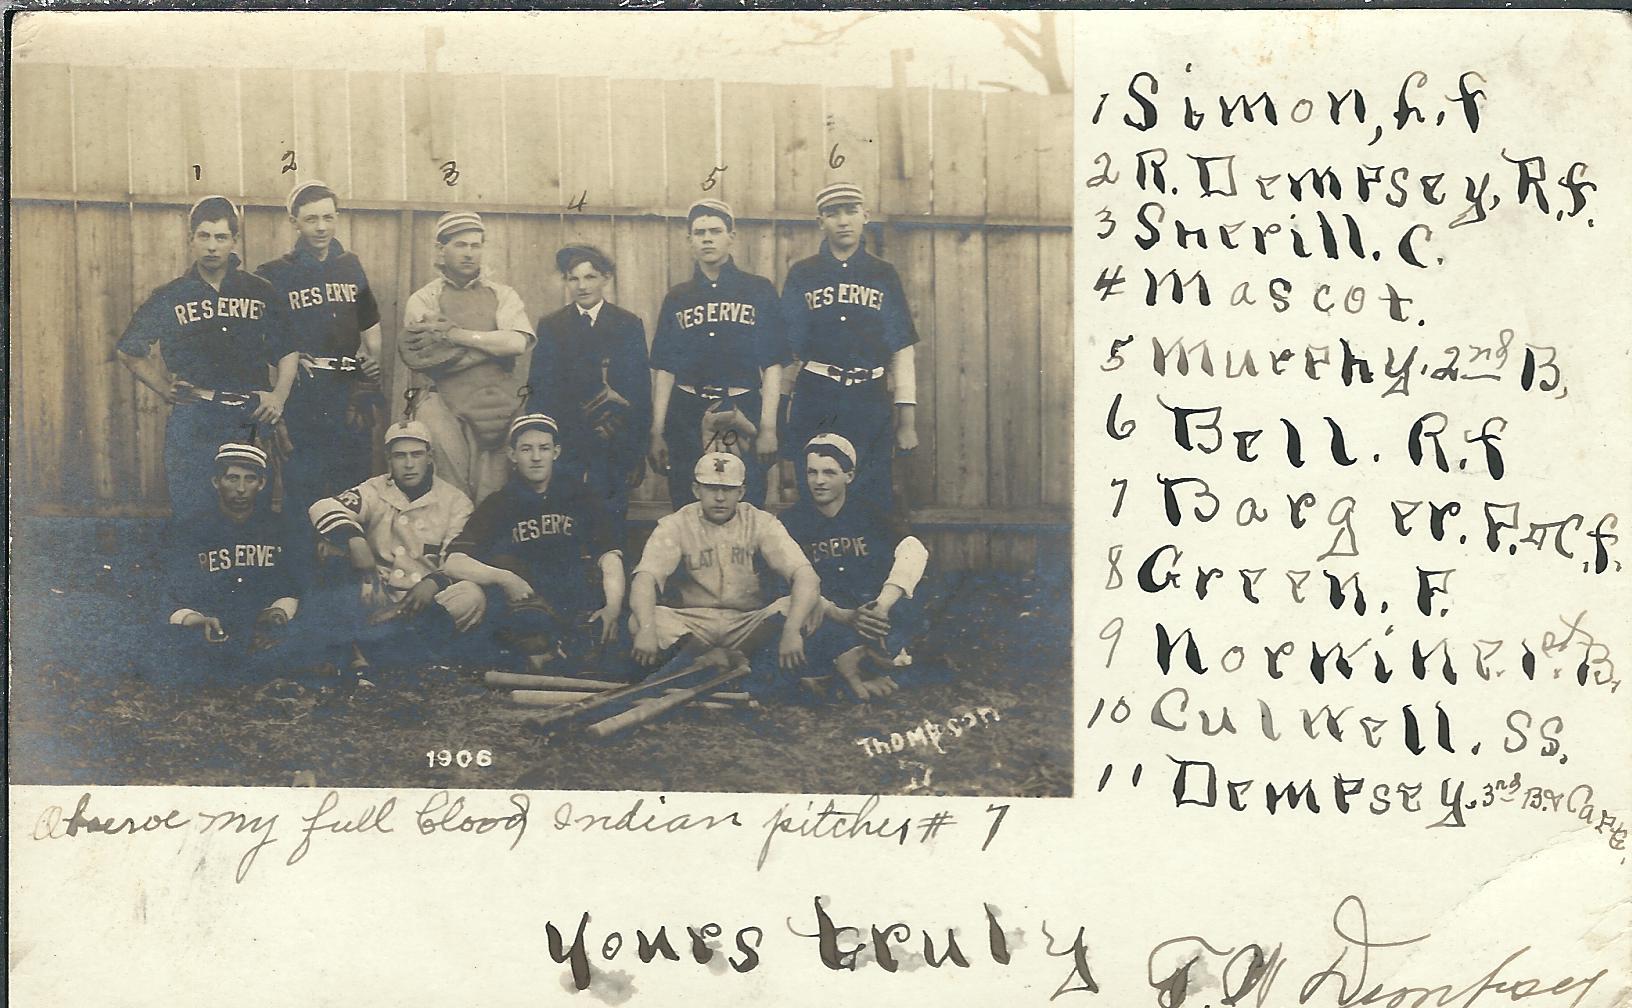 1 2 3 4 5 6
RESERVE RESERVE RESERVE RESERVE
7 8 9 10 11
RESERVE RESERVE RESERVE
1906
Thompson
1 Simon, L.f
2 R. Dempsey. R.f.
3 Sherill. C.
4 Mascot.
5 Murphy. 2nd B.
6 Bell. R.f
7 Barger. P. & C.f.
8 Green. P.
9 Norwine. 1st B.
10 Culwell. SS.
11 Dempsey. 3rd B. & Capt.
Observe my full blood Indian pitcher # 7
Yours truly
T. W Dempsey